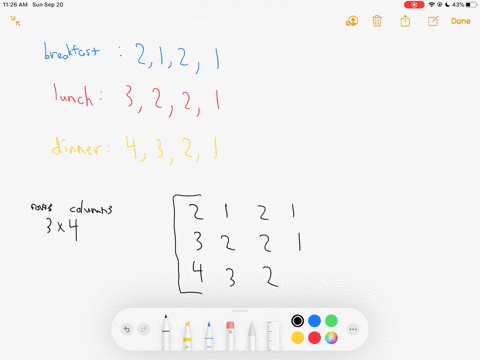 11:26 AM Sun Sep 20
43%
Done
breakfast: 2, 1, 2, 1
lunch: 3, 2, 2, 1
dinner: 4, 3, 2, 1
rows columns
3 x 4
2 1 2 1
3 2 2 1
4 3 2